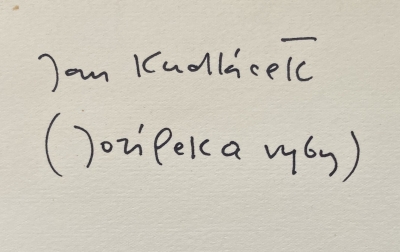 Jan Kudláček
(Jozífek a ryby)